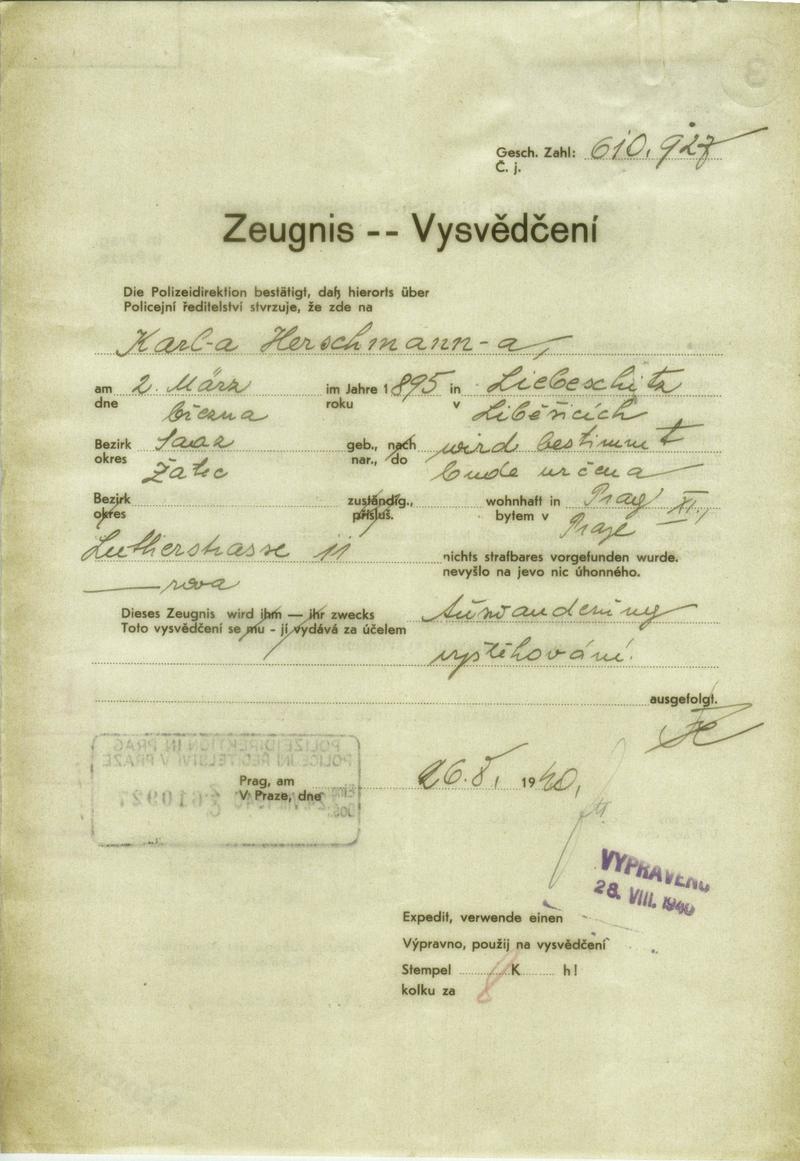 Gesch. Zahl: 610.927
Č. j.
Zeugnis -- Vysvědčení
Die Polizeidirektion bestätigt, daß hierorts über
Policejní ředitelství stvrzuje, že zde na
Karl-a Herschmann-a,
am 2. März im Jahre 1895 in Liebeschitz
dne března roku v Liběšicích
Bezirk Saaz geb., nach wird bestimmt
okres Žatec nar., do bude určena
Bezirk zuständig., wohnhaft in Prag XI.,
okres přísluš. bytem v Praze
Lutherstrasse 11 nichts strafbares vorgefunden wurde.
rova nevyšlo na jevo nic úhonného.
Dieses Zeugnis wird ihm — ihr zwecks Auswanderung
Toto vysvědčení se mu - jí vydává za účelem
vystěhování.
ausgefolgt.
POLIZEIDIREKTION IN PRAG
POLICEJNÍ ŘEDITELSTVÍ V PRAZE
Prag, am 26.8. 1940.
V Praze, dne
610927
VYPRAVENO
28. VIII. 1940
Expedit, verwende einen
Výpravno, použij na vysvědčení
Stempel 8 K h!
kolku za